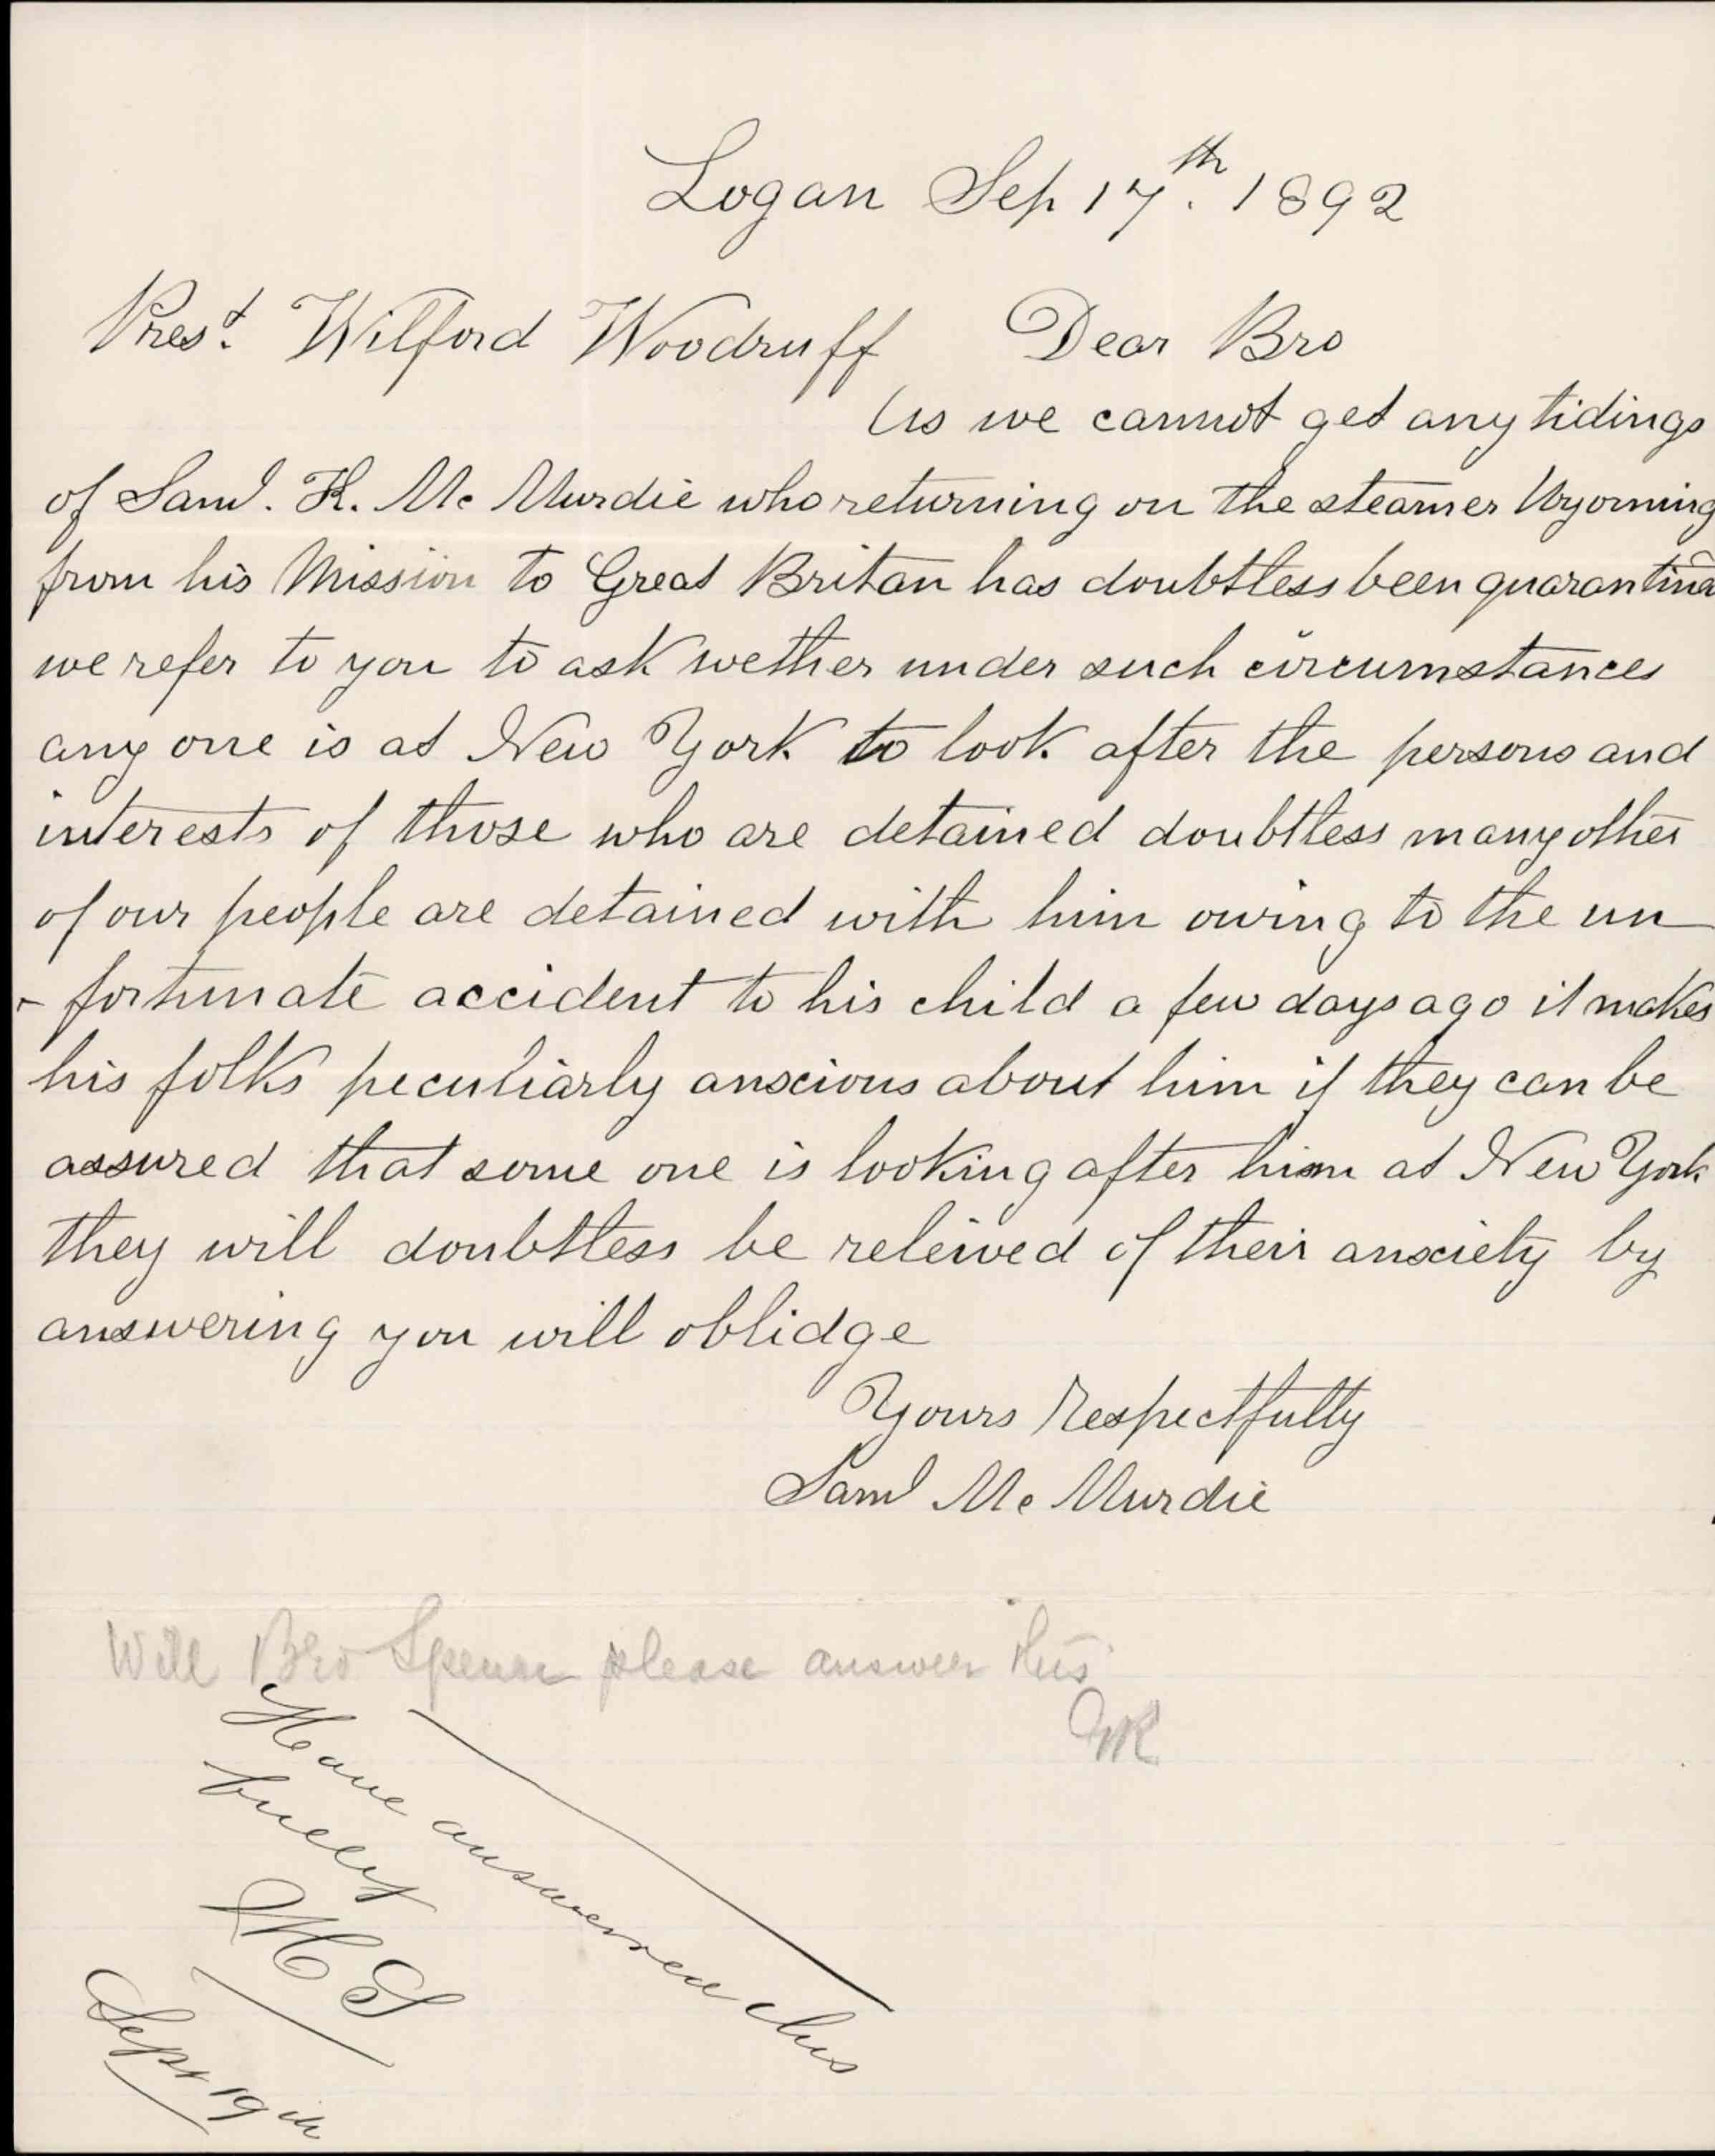 Logan Sep 17th. 1892
Prest. Wilford Woodruff Dear Bro
As we cannot get any tidings
of Saml. H. Mc Murdie who returning on the steamer Wyoming
from his Mission to Great Britan has doubtless been quarantine
we refer to you to ask wether under such circumstances
any one is at New York to look after the persons and
interests of those who are detained doubtless many other
of our people are detained with him owing to the un
- fortunate accident to his child a few days ago it makes
his folks peculiarly anxcious about him if they can be
assured that some one is looking after him at New York
they will doubtless be releived of their anxciety by
answering you will oblidge
Yours Respectfully
Saml Mc Murdie
Will Bro Spence please answer this
Have answered this
fully
Sept 19th